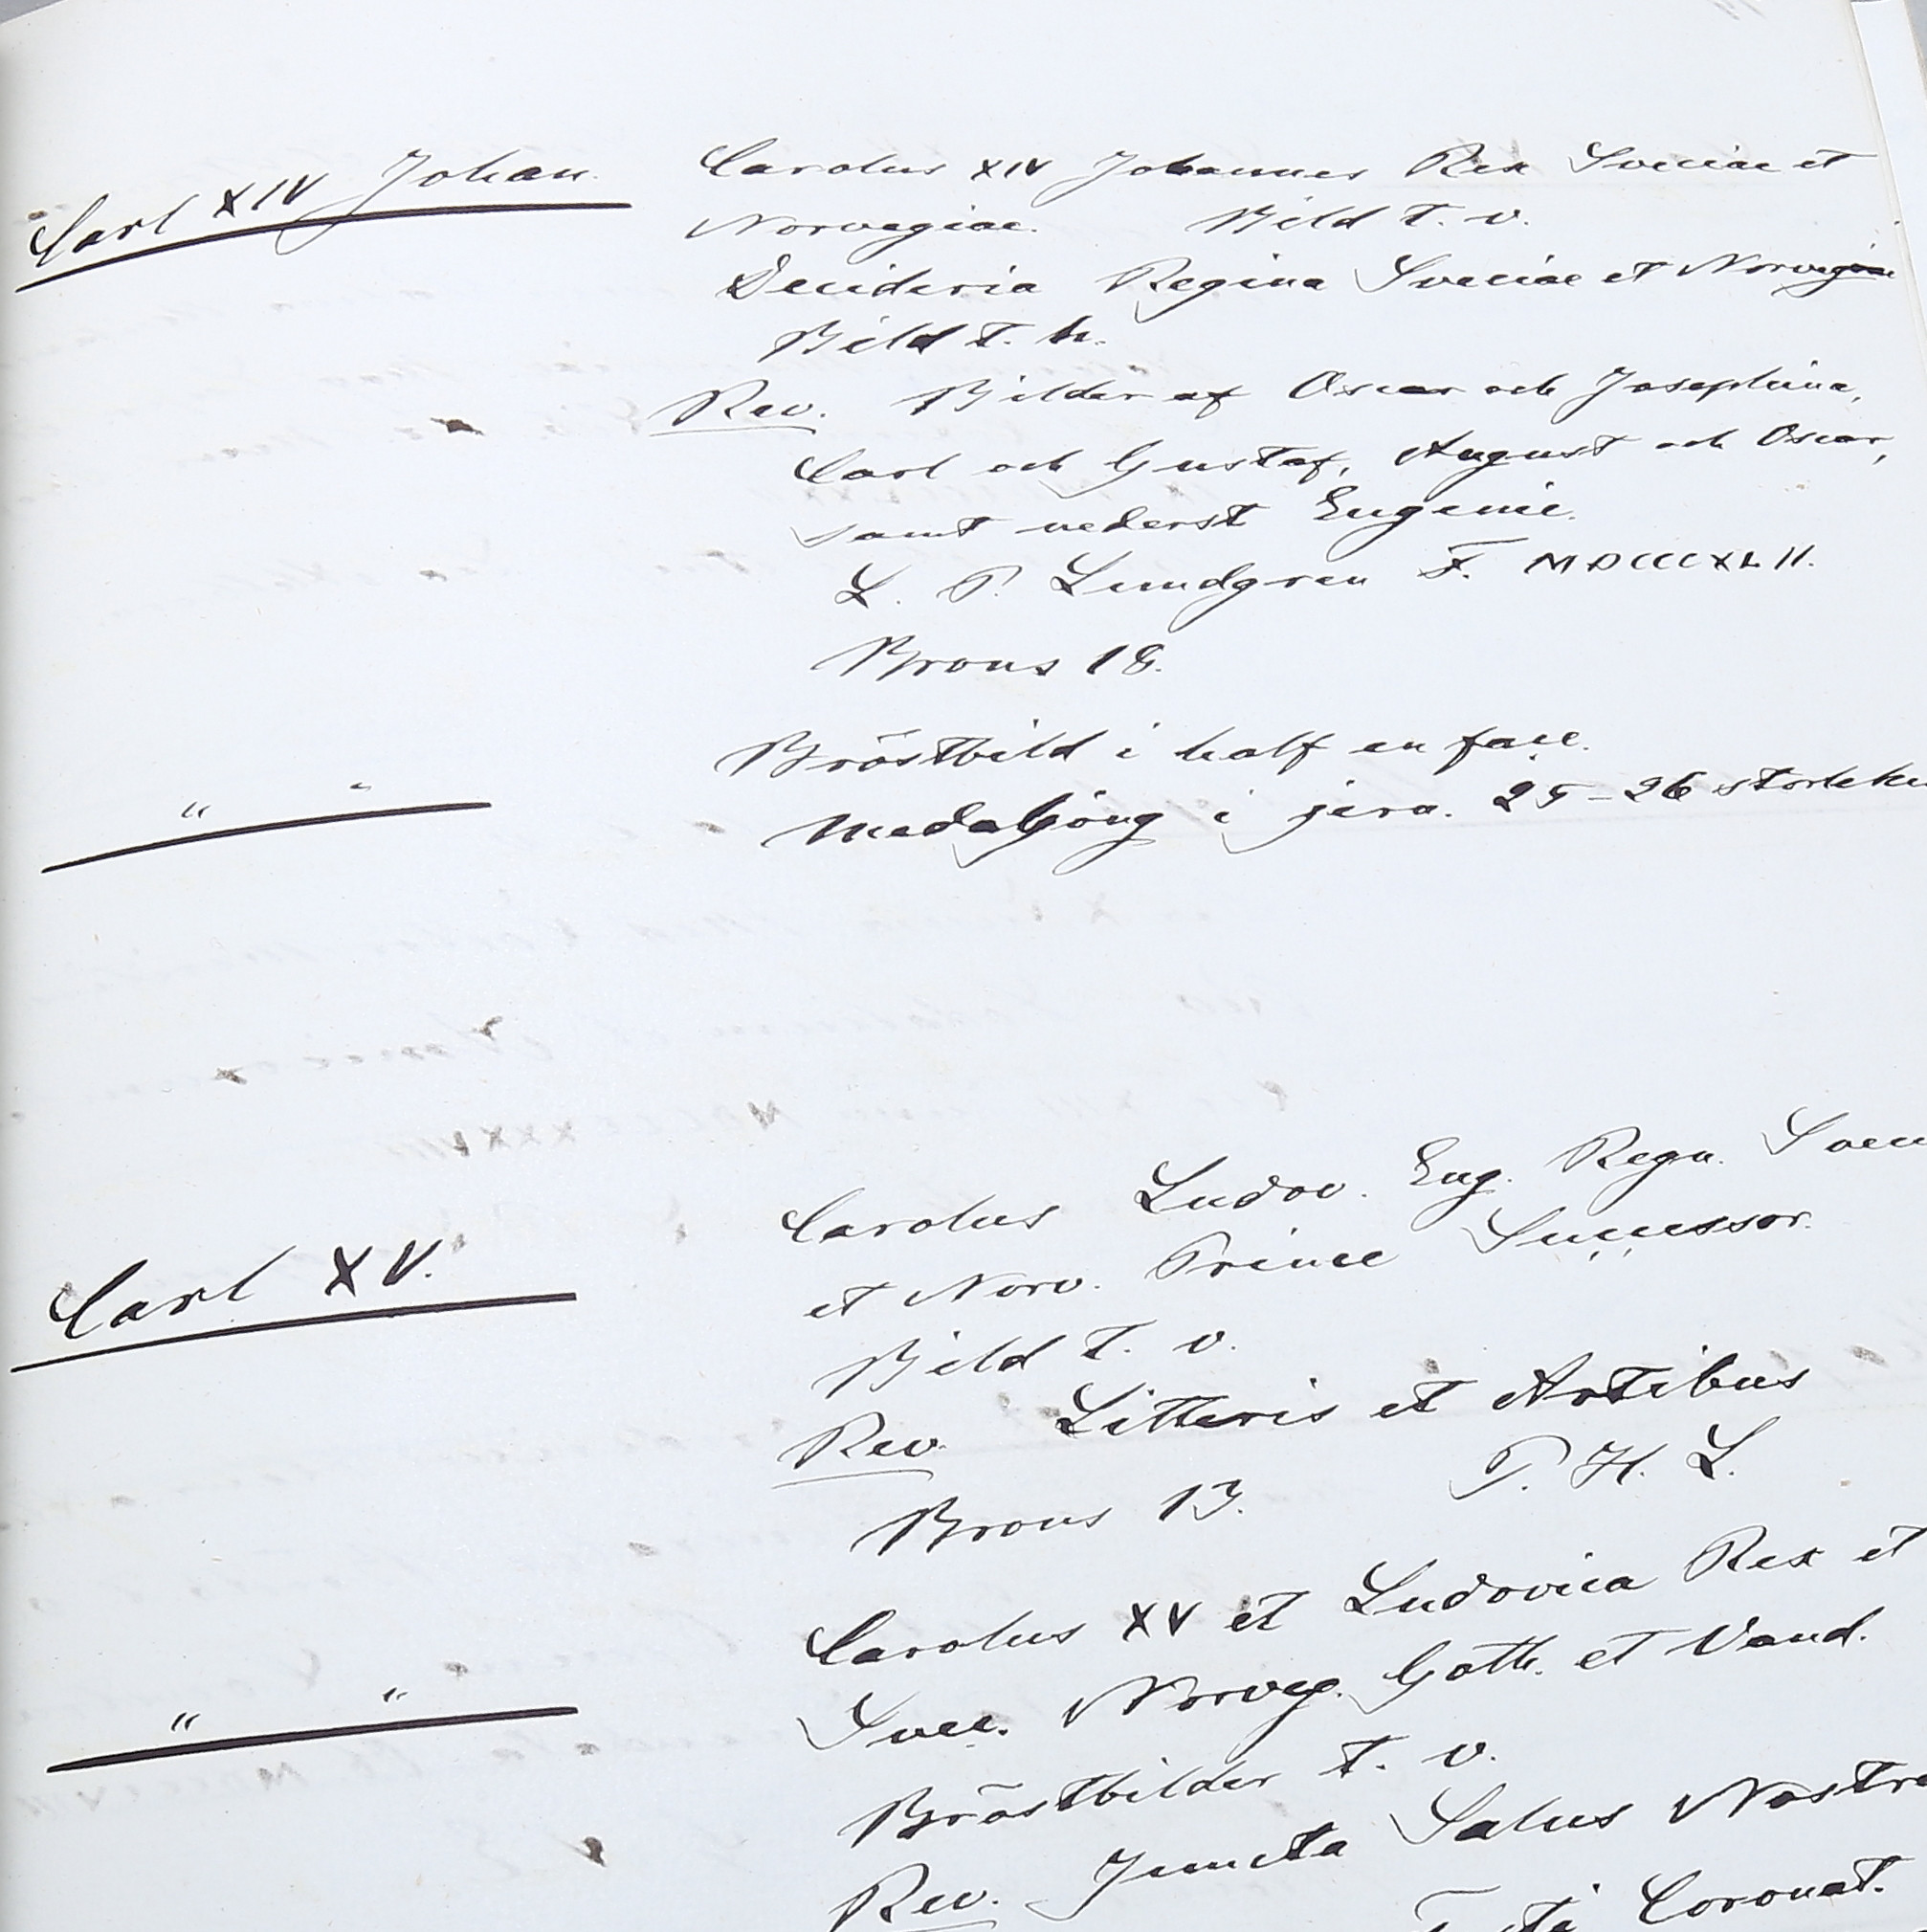 Carl XIV Johan. Carolus XIV Johannes Rex Sveciae et
Norvegiae. Bild t. v.
Decideria Regina Sveciae et Norvegiae
Bild t. h.
Rev. Bilder af Oscar och Josephina,
Carl och Gustaf, August och Oscar,
samt nederst Eugenie.
L. P. Lundgren F. MDCCCXLII.
Brons 18.
" " Bröstbild i half en face.
Medaljöng i jern. 25-26 storleken
Carl XV. Carolus Ludov. Eug. Regn. Svec
et Norv. Princ Successor.
Bild t. v.
Rev. Litteris et Artibus
Brons 13. P. H. L.
" " Carolus XV et Ludovica Rex et
Svec. Norveg. Goth. et Vand.
Bröstbilder t. v.
Rev. Juncta Salus Nostra
Coronat.